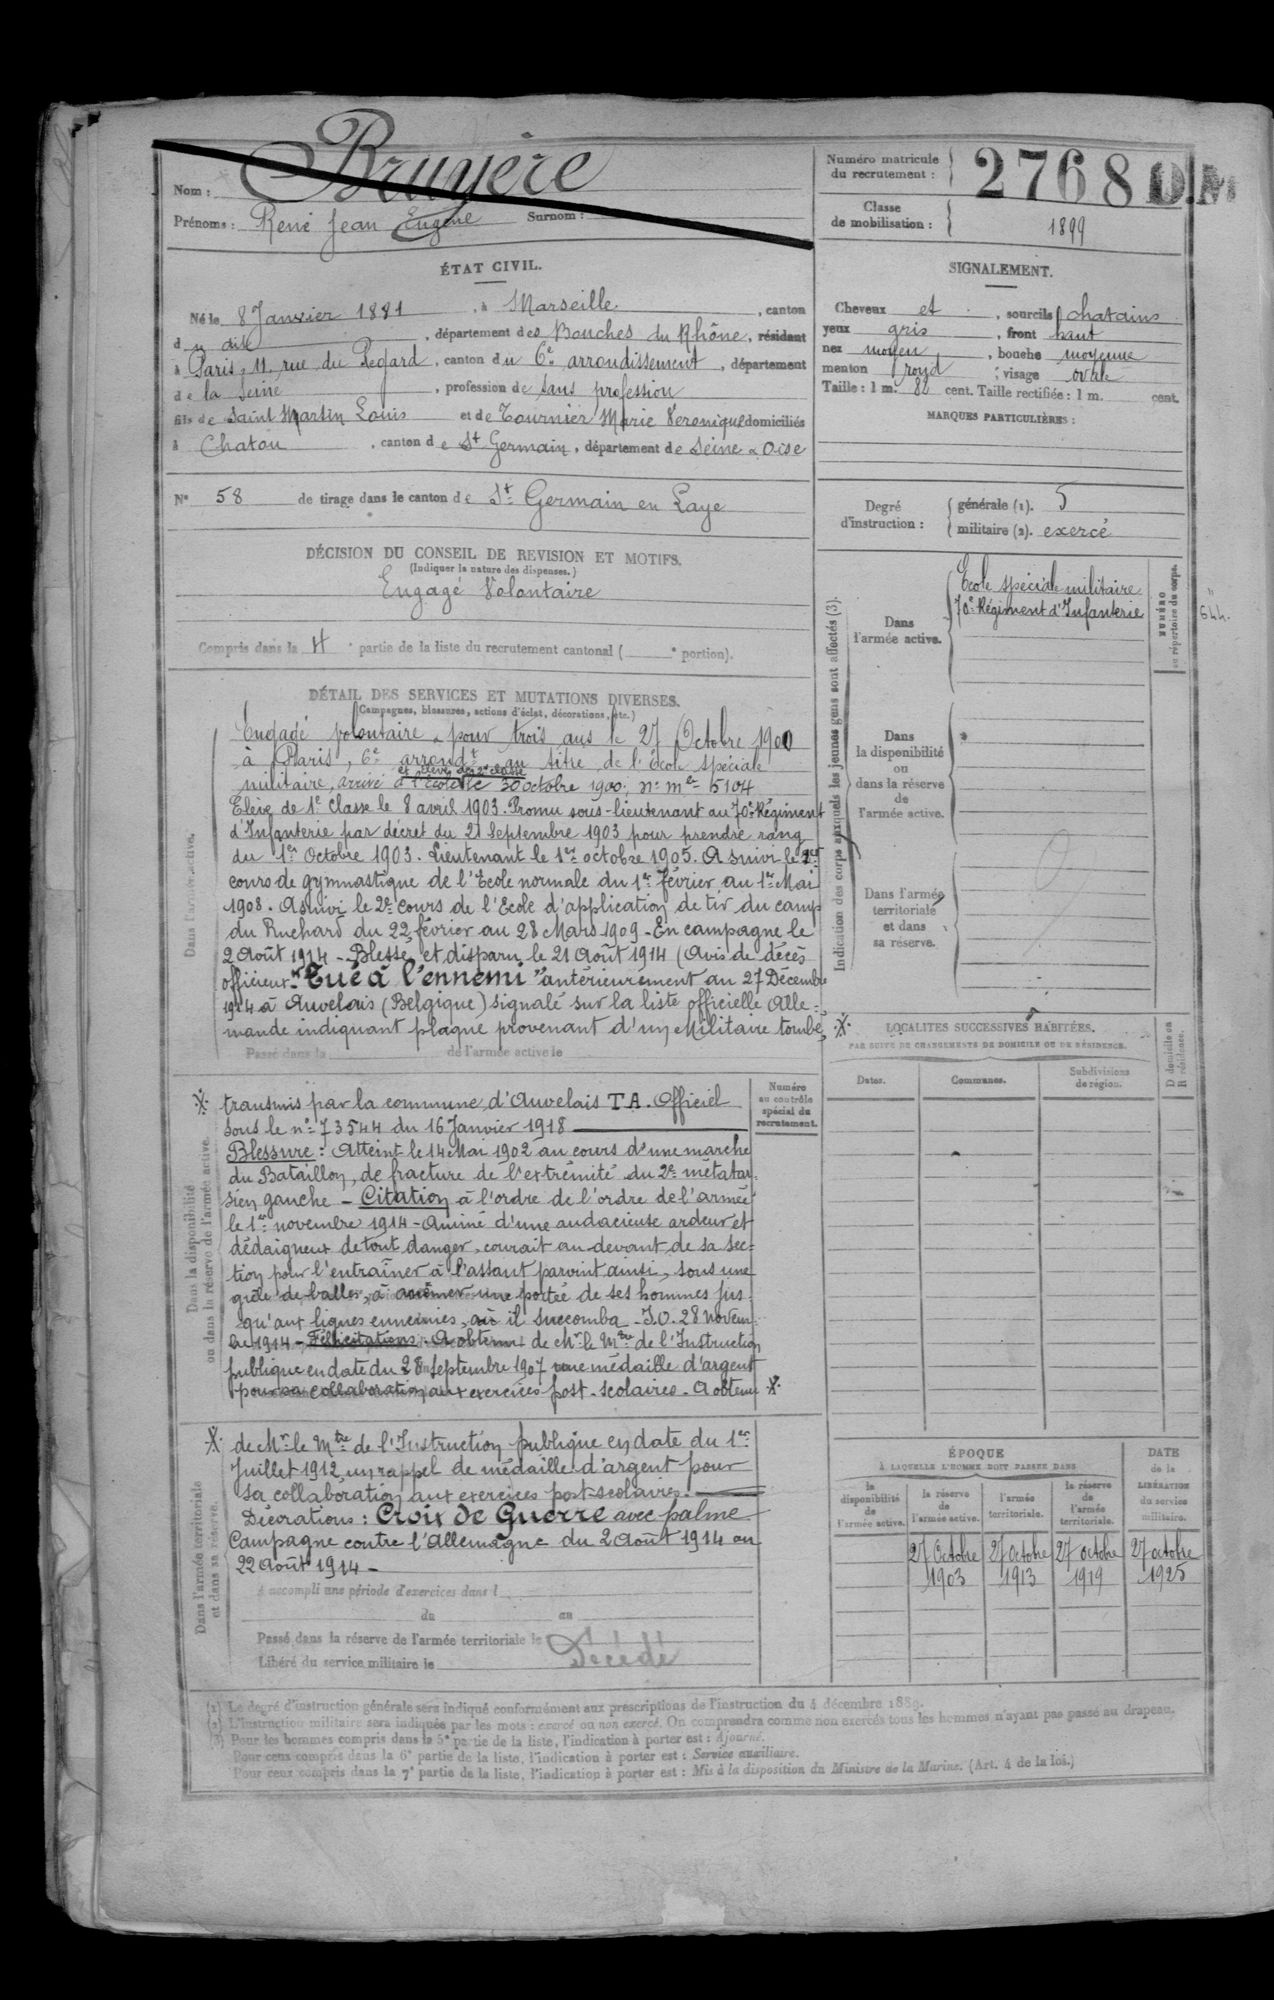 Nom : Bruyère
Prénoms : René Jean Eugène Surnom :
Numéro matricule du recrutement : 2768 D.M
Classe de mobilisation : 1899
ÉTAT CIVIL.
Né le 8 Janvier 1881, à Marseille, canton
du dit, département des Bouches du Rhône, résidant
à Paris, 11, rue du Regard, canton du 6e arrondissement, département
de la Seine, profession de sans profession
fils de Saint Martin Louis et de Tournier Marie Véronique domiciliés
à Chatou, canton de St Germain, département de Seine & Oise
N° 58 de tirage dans le canton de St Germain en Laye
SIGNALEMENT.
Cheveux et, sourcils chatains
yeux gris, front haut
nez moyen, bouche moyenne
menton royd; visage ovale
Taille : 1 m. 80 cent. Taille rectifiée : 1 m. cent.
MARQUES PARTICULIÈRES :
Degré d'instruction :
générale (1). 5
militaire (2). exercé
DÉCISION DU CONSEIL DE REVISION ET MOTIFS.
(Indiquer la nature des dispenses.)
Engagé Volontaire
Compris dans la 4e partie de la liste du recrutement cantonal ( e portion).
Indication des corps auxquels les jeunes gens sont affectés (3).
Dans l'armée active.
Ecole spéciale militaire
70e Régiment d'Infanterie
NUMÉRO au répertoire du corps.
644.
Dans la disponibilité ou dans la réserve de l'armée active.
Dans l'armée territoriale et dans sa réserve.
DÉTAIL DES SERVICES ET MUTATIONS DIVERSES.
(Campagnes, blessures, actions d'éclat, décorations, etc.)
Dans l'armée active.
Engagé volontaire pour trois ans le 27 Octobre 1900
à Paris, 6e arrondt au titre de l'École spéciale
et élève de 2e classe
militaire, arrivé à l'école le 30 octobre 1900, n° mle 5104
Elève de 1e classe le 8 avril 1903. Promu sous-lieutenant au 70e Régiment
d'Infanterie par décret du 21 Septembre 1903 pour prendre rang
du 1er Octobre 1903. Lieutenant le 1er octobre 1905. A suivi le 1er
cours de gymnastique de l'Ecole normale du 1er février au 1er Mai
1908. A suivi le 2e cours de l'Ecole d'application de tir du camp
du Ruchard du 22 février au 28 Mars 1909 - En campagne le
2 Août 1914 - Blessé et disparu le 21 Août 1914 (Avis de décès
officieux "Tué à l'ennemi" antérieurement au 27 Décembre
1914 à Auvelais (Belgique) signalé sur la liste officielle Alle-
mande indiquant plaque provenant d'un Militaire tombé,
Passé dans la de l'armée active le
Dans la disponibilité ou dans la réserve de l'armée active.
transmis par la commune d'Auvelais T A. Officiel
sous le n° 73544 du 16 Janvier 1918
Blessure : Atteint le 14 Mai 1902 au cours d'une marche
du Bataillon, de fracture de l'extrémité du 2e métatar-
sien gauche - Citation à l'ordre de l'ordre de l'armée
le 1er novembre 1914 - Animé d'une audacieuse ardeur et
dédaigneux de tout danger, courait au-devant de sa sec-
tion pour l'entraîner à l'assaut parvint ainsi, sous une
grêle de balles, à amener une portée de ses hommes jus-
qu'aux lignes ennemies, où il succomba - J.O. 28 novem-
bre 1914 - Félicitations - A obtenu de Mr le Mtre de l'Instruction
publique en date du 28 Septembre 1907 une médaille d'argent
pour sa collaboration aux exercices post-scolaires. A obtenu
Numéro au contrôle spécial du recrutement.
Dans l'armée territoriale et dans sa réserve.
de Mr le Mtre de l'Instruction publique en date du 1er
Juillet 1912, un rappel de médaille d'argent pour
sa collaboration aux exercices post-scolaires.
Décorations : Croix de Guerre avec palme
Campagne contre l'Allemagne du 2 Août 1914 au
22 Août 1914 -
a accompli une période d'exercices dans l
du au
Passé dans la réserve de l'armée territoriale le
Libéré du service militaire le
Décédé
LOCALITÉS SUCCESSIVES HABITÉES.
PAR SUITE DE CHANGEMENTS DE DOMICILE OU DE RÉSIDENCE.
Dates.
Communes.
Subdivisions de région.
D domicile ou R résidence.
ÉPOQUE
À LAQUELLE L'HOMME DOIT PASSER DANS
la disponibilité de l'armée active.
la réserve de l'armée active.
l'armée territoriale.
la réserve de l'armée territoriale.
DATE de la LIBÉRATION du service militaire.
27 Octobre 1903
27 Octobre 1913
27 octobre 1919
27 octobre 1925
(1) Le degré d'instruction générale sera indiqué conformément aux prescriptions de l'instruction du 4 décembre 1889.
(2) L'instruction militaire sera indiquée par les mots : exercé ou non exercé. On comprendra comme non exercés tous les hommes n'ayant pas passé au drapeau.
(3) Pour les hommes compris dans la 5e partie de la liste, l'indication à porter est : Ajourné.
Pour ceux compris dans la 6e partie de la liste, l'indication à porter est : Service auxiliaire.
Pour ceux compris dans la 7e partie de la liste, l'indication à porter est : Mis à la disposition du Ministre de la Marine. (Art. 4 de la loi.)